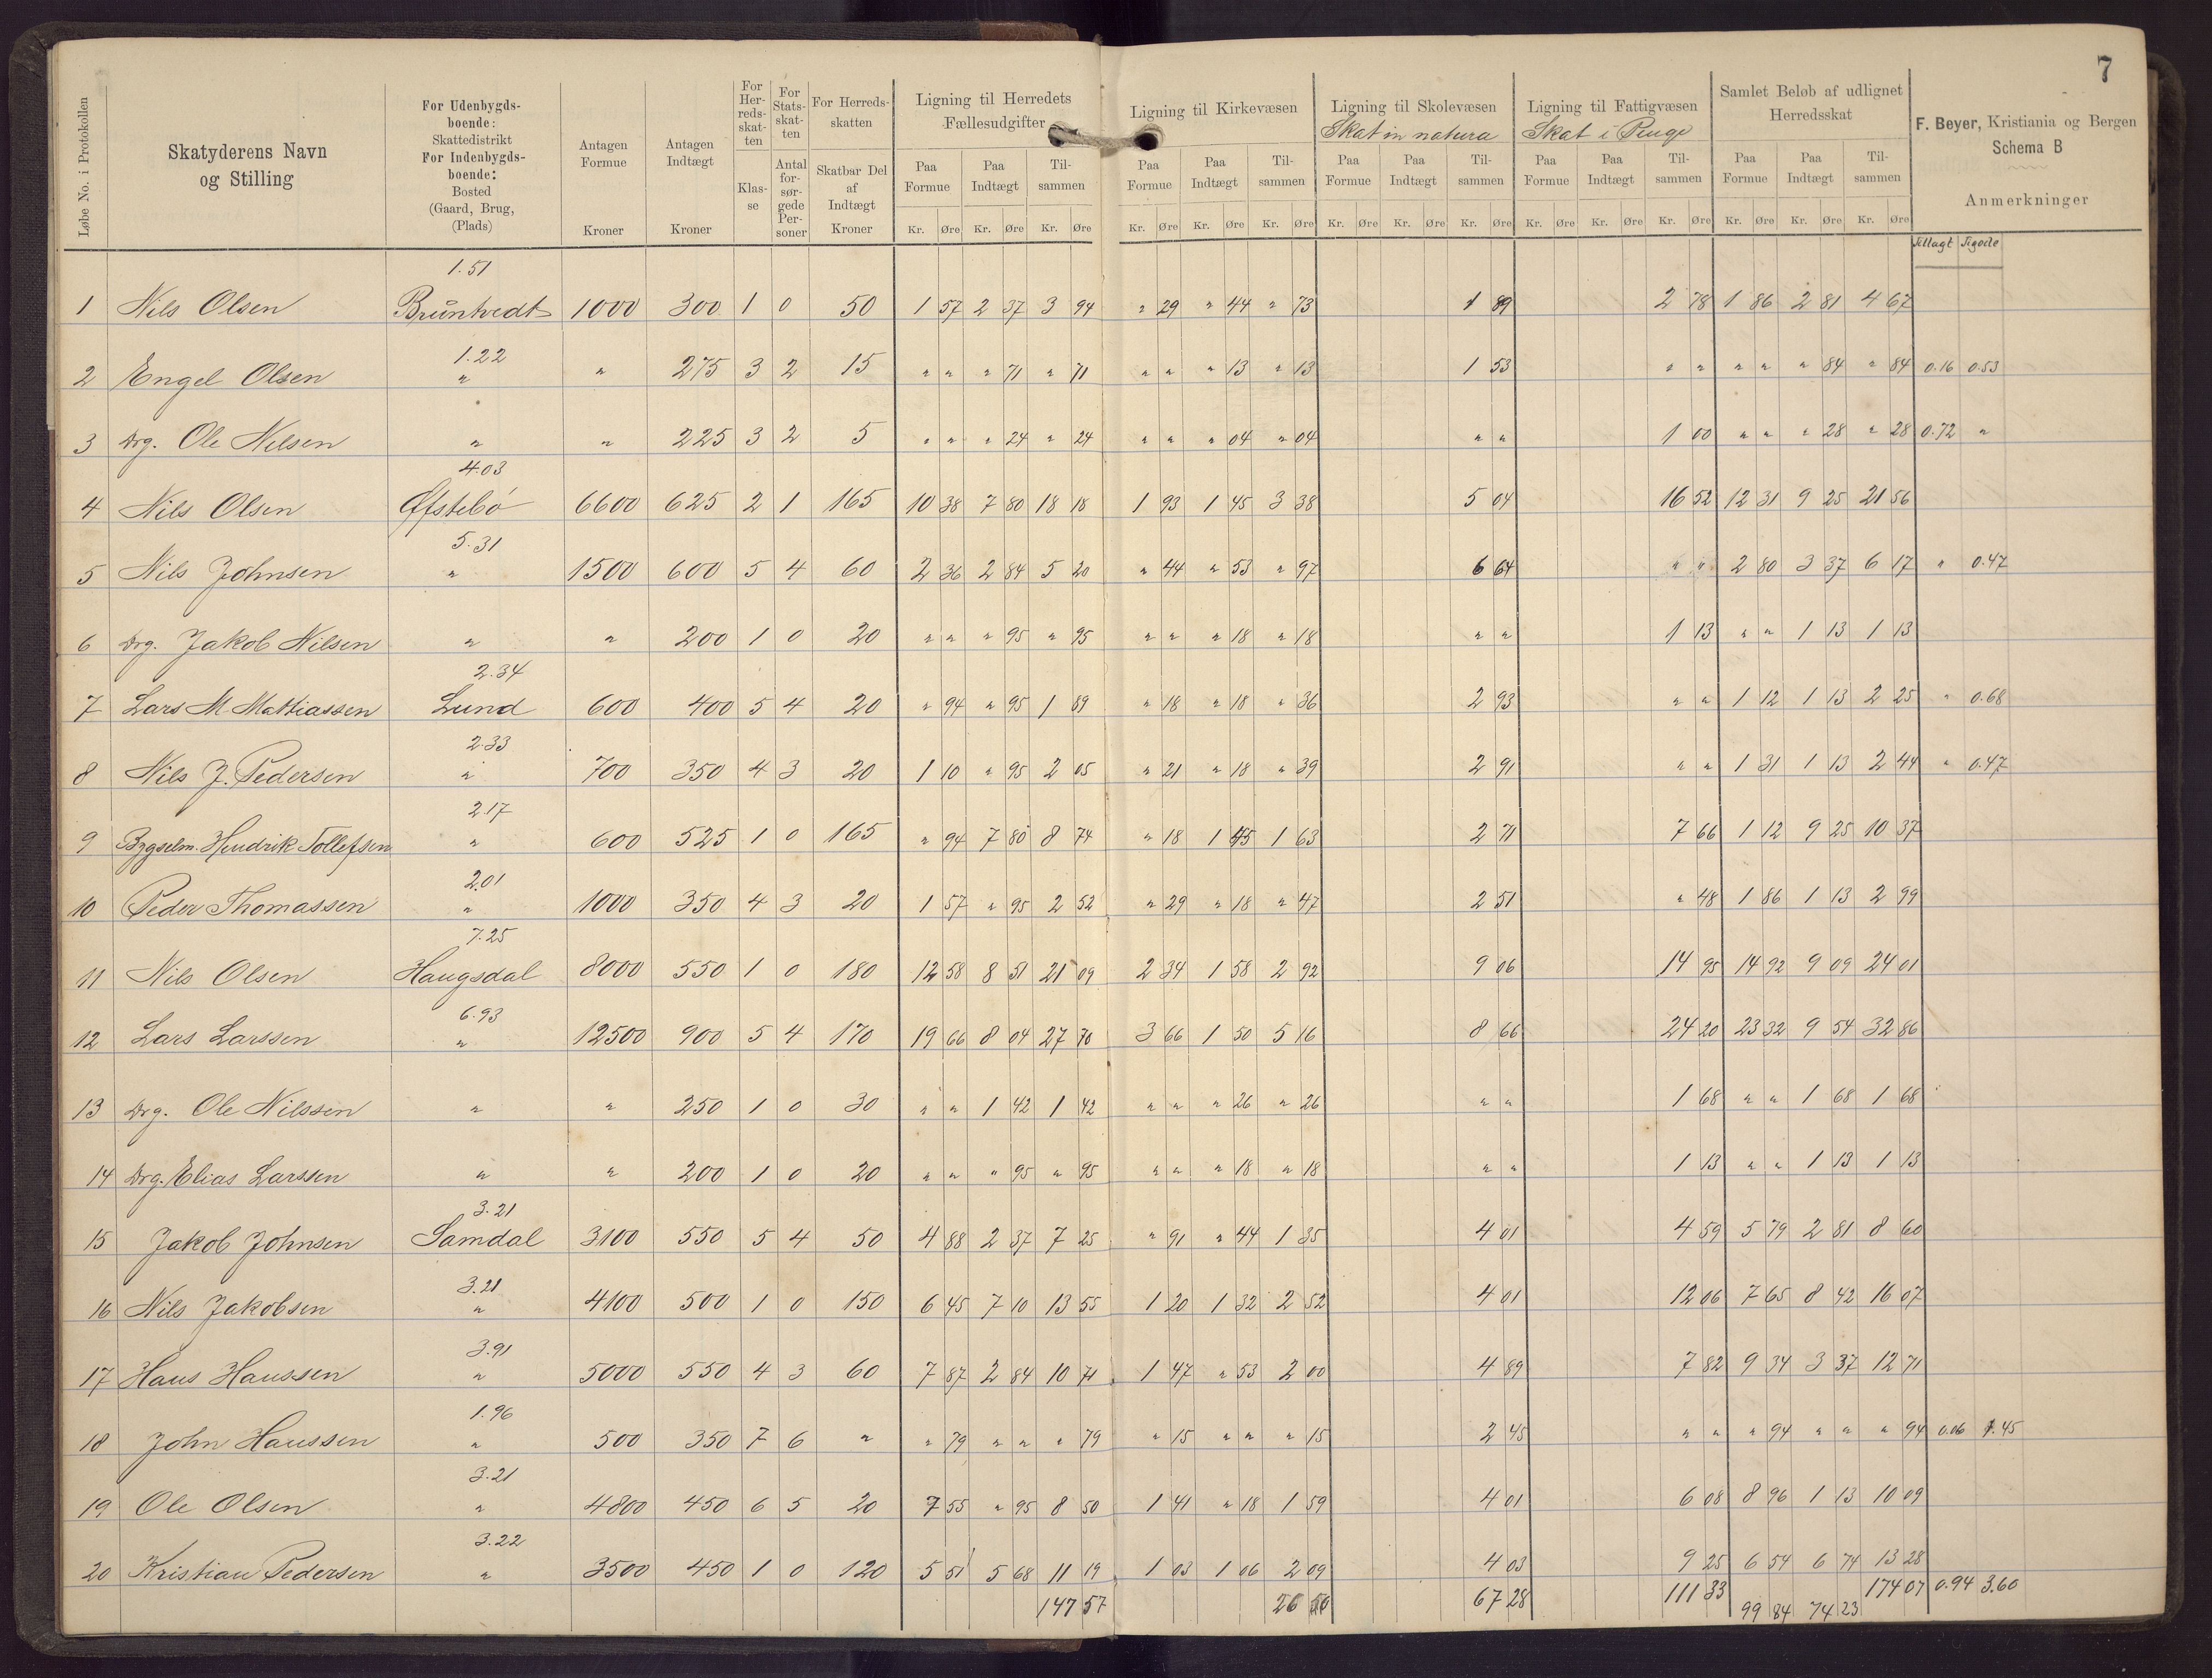 7
Løbe No. i Protokollen
Skatyderens Navn og Stilling
For Udenbygdsboende: Skattedistrikt For Indenbygdsboende: Bosted (Gaard, Brug, (Plads)
Antagen Formue Kroner
Antagen Indtægt Kroner
For Herredsskatten Klasse
For Statsskatten Antal forsørgede Personer
For Herredsskatten Skatbar Del af Indtægt Kroner
Ligning til Herredets Fællesudgifter
Ligning til Kirkevæsen
Ligning til Skolevæsen
Skat in natura
Ligning til Fattigvæsen
Skat i Penge
Samlet Beløb af udlignet Herredsskat
F. Beyer, Kristiania og Bergen
Schema B
Anmerkninger
Paa Formue Paa Indtægt Tilsammen Paa Formue Paa Indtægt Tilsammen Paa Formue Paa Indtægt Tilsammen Paa Formue Paa Indtægt Tilsammen Paa Formue Paa Indtægt Tilsammen
Kr. Øre Kr. Øre Kr. Øre Kr. Øre Kr. Øre Kr. Øre Kr. Øre Kr. Øre Kr. Øre Kr. Øre Kr. Øre Kr. Øre Kr. Øre Kr. Øre Kr. Øre
Tillagt Tigode
1.51
1 Nils Olsen Bruntvedt 1000 300 1 0 50 1 57 2 37 3 94 " 29 " 44 " 73 1 89 2 78 1 86 2 81 4 67
1.22
2 Engel Olsen " " 275 3 2 15 " " " 71 " 71 " " " 13 " 13 1 53 " " " " " 84 " 84 0.16 0.53
3 Drg. Ole Nilsen " " 225 3 2 5 " " " 24 " 24 " " " 04 " 04 " " 1 00 " " " 28 " 28 0.72 "
4.03
4 Nils Olsen Øfstebø 6600 625 2 1 165 10 38 7 80 18 18 1 93 1 45 3 38 5 04 16 52 12 31 9 25 21 56
5.31
5 Nils Johnsen " 1500 600 5 4 60 2 36 2 84 5 20 " 44 " 53 " 97 6 64 " " 2 80 3 37 6 17 " 0.47
6 Drg. Jakob Nilsen " " 200 1 0 20 " " " 95 " 95 " " " 18 " 18 " " 1 13 " " 1 13 1 13
2.34
7 Lars M. Mattiassen Lund 600 400 5 4 20 " 94 " 95 1 89 " 18 " 18 " 36 2 93 " " 1 12 1 13 2 25 " 0.68
2.33
8 Nils J. Pedersen " 700 350 4 3 20 1 10 " 95 2 05 " 21 " 18 " 39 2 91 " " 1 31 1 13 2 44 " 0.47
2.17
9 Bygselm. Hendrik Tollefsen " 600 525 1 0 165 " 94 7 80 8 74 " 18 1 45 1 63 2 71 7 66 1 12 9 25 10 37
2.01
10 Peder Thomassen " 1000 350 4 3 20 1 57 " 95 2 52 " 29 " 18 " 47 2 51 " 48 1 86 1 13 2 99
7.25
11 Nils Olsen Haugsdal 8000 550 1 0 180 12 58 8 51 21 09 2 34 1 58 2 92 9 06 14 95 14 92 9 09 24 01
6.93
12 Lars Larssen " 12500 900 5 4 170 19 66 8 04 27 70 3 66 1 50 5 16 8 66 24 20 23 32 9 54 32 86
13 Drg. Ole Nilssen " " 250 1 0 30 " " 1 42 1 42 " " " 26 " 26 " " 1 68 " " 1 68 1 68
14 Drg. Elias Larssen " " 200 1 0 20 " " " 95 " 95 " " " 18 " 18 " " 1 13 " " 1 13 1 13
3.21
15 Jakob Johnsen Samdal 3100 550 5 4 50 4 88 2 37 7 25 " 91 " 44 1 35 4 01 4 59 5 79 2 81 8 60
3.21
16 Nils Jakobsen " 4100 500 1 0 150 6 45 7 10 13 55 1 20 1 32 2 52 4 01 12 06 7 65 8 42 16 07
3.91
17 Hans Hanssen " 5000 550 4 3 60 7 87 2 84 10 71 1 47 " 53 2 00 4 89 7 82 9 34 3 37 12 71
1.96
18 John Hanssen " 500 350 7 6 " " 79 " " " 79 " 15 " " " 15 2 45 " " " 94 " " " 94 0.06 1.45
3.21
19 Ole Olsen " 4800 450 6 5 20 7 55 " 95 8 50 1 41 " 18 1 59 4 01 6 08 8 96 1 13 10 09
3.22
20 Kristian Pedersen " 3500 450 1 0 120 5 51 5 68 11 19 1 03 1 06 2 09 4 03 9 25 6 54 6 74 13 28
147 57 26 50 67 28 111 33 99 84 74 23 174 07 0.94 3.60